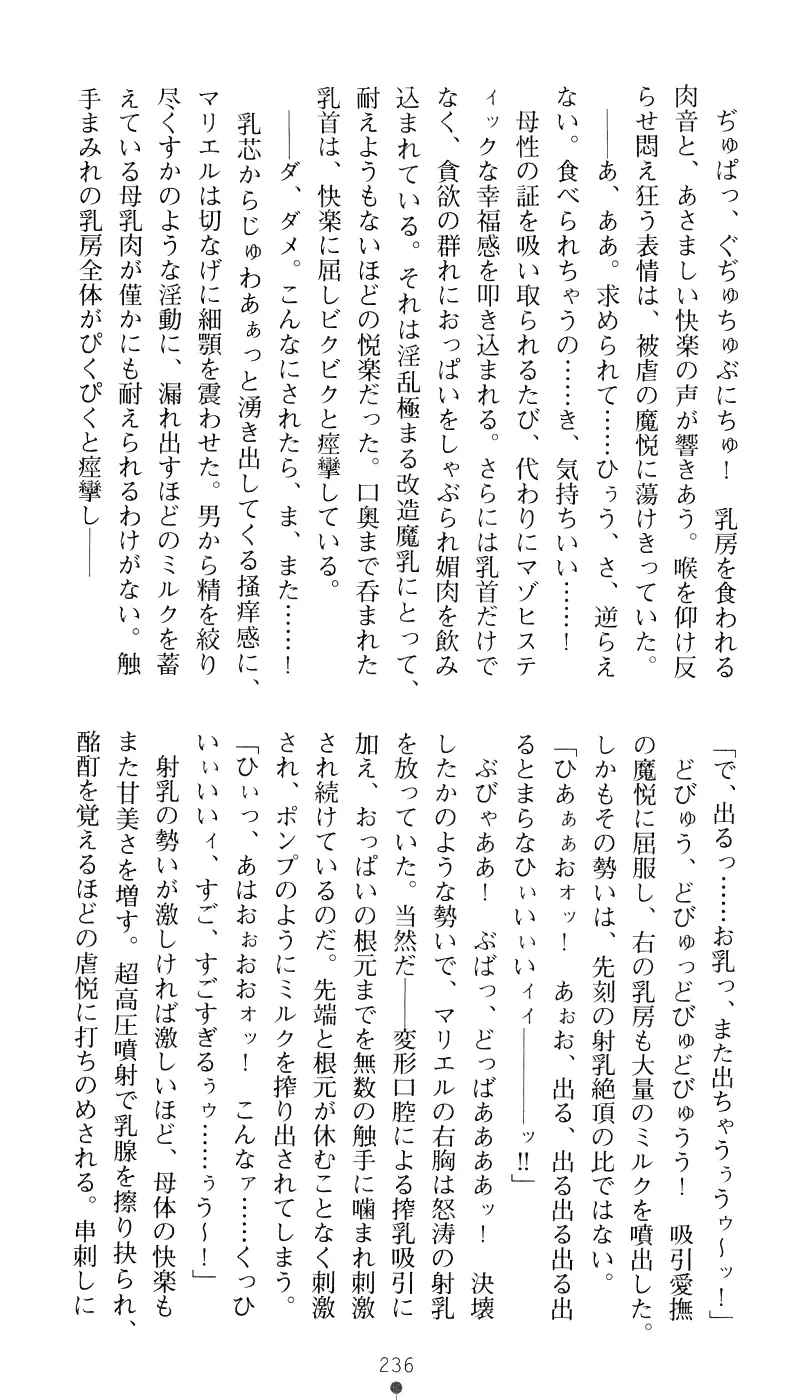 ぢゅぱっ、ぐぢゅちゅぶにちゅ！　乳房を食われる
肉音と、あさましい快楽の声が響きあう。喉を仰け反
らせ悶え狂う表情は、被虐の魔悦に蕩けきっていた。
――あ、ああ。求められて……ひぅう、さ、逆らえ
ない。食べられちゃうの……き、気持ちいい……！
母性の証を吸い取られるたび、代わりにマゾヒステ
ィックな幸福感を叩き込まれる。さらには乳首だけで
なく、貪欲の群れにおっぱいをしゃぶられ媚肉を飲み
込まれている。それは淫乱極まる改造魔乳にとって、
耐えようもないほどの悦楽だった。口奥まで呑まれた
乳首は、快楽に屈しビクビクと痙攣している。
――ダ、ダメ。こんなにされたら、ま、また……！
乳芯からじゅわあぁっと湧き出してくる掻痒感に、
マリエルは切なげに細顎を震わせた。男から精を絞り
尽くすかのような淫動に、漏れ出すほどのミルクを蓄
えている母乳肉が僅かにも耐えられるわけがない。触
手まみれの乳房全体がぴくぴくと痙攣し――
「で、出るっ……お乳っ、また出ちゃうぅうゥ～ッ！」
どびゅう、どびゅっどびゅどびゅうう！　吸引愛撫
の魔悦に屈服し、右の乳房も大量のミルクを噴出した。
しかもその勢いは、先刻の射乳絶頂の比ではない。
「ひあぁぉォッ！　あぉお、出る、出る出る出る出
るとまらなひぃいぃいィィ――――ッ!!」
ぶびゃああ！　ぶばっ、どっばああああッ！　決壊
したかのような勢いで、マリエルの右胸は怒涛の射乳
を放っていた。当然だ――変形口腔による搾乳吸引に
加え、おっぱいの根元までを無数の触手に噛まれ刺激
され続けているのだ。先端と根元が休むことなく刺激
され、ポンプのようにミルクを搾り出されてしまう。
「ひぃっ、あはおぉおおォッ！　こんなァ……くっひ
いぃいいィ、すご、すごすぎるぅゥ……ぅう～！」
射乳の勢いが激しければ激しいほど、母体の快楽も
また甘美さを増す。超高圧噴射で乳腺を擦り抉られ、
酩酊を覚えるほどの虐悦に打ちのめされる。串刺しに
236